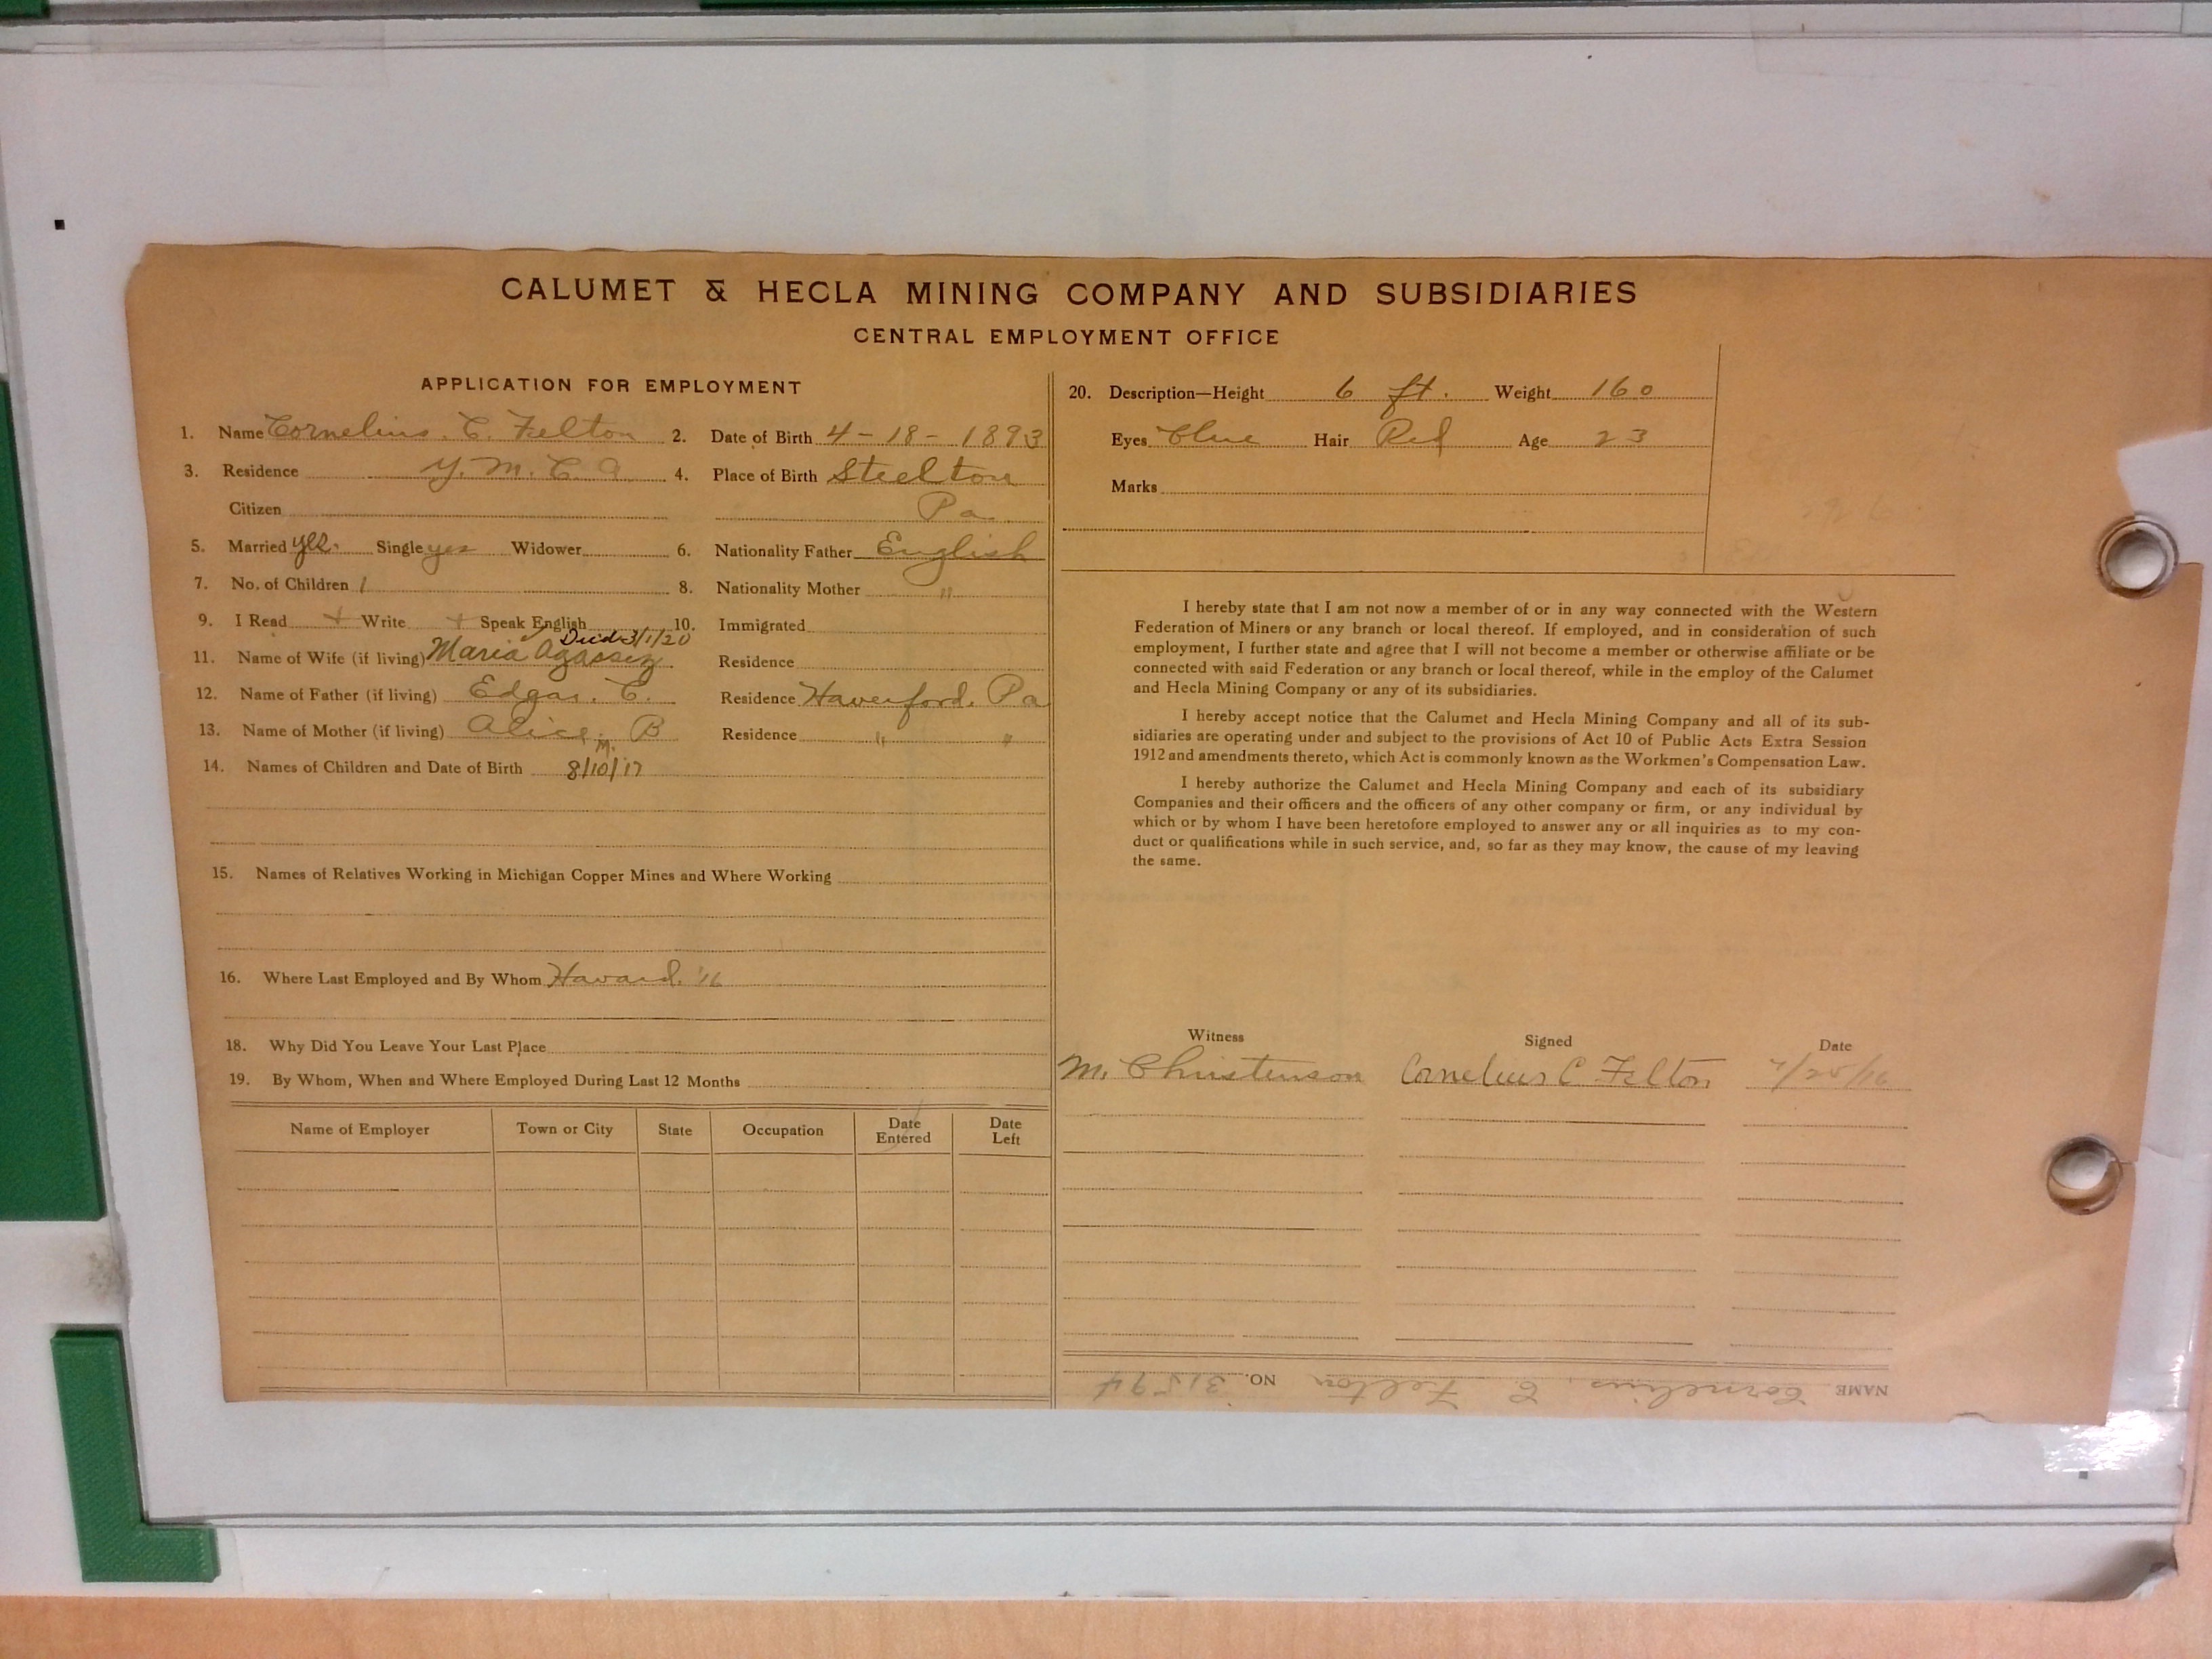 CALUMET & HECLA MINING COMPANY AND SUBSIDIARIES
CENTRAL EMPLOYMENT OFFICE
APPLICATION FOR EMPLOYMENT
1. Name Cornelius. C. Felton 2. Date of Birth 4-18-1893
3. Residence Y. M. C. A. 4. Place of Birth Steelton
Citizen Pa
5. Married yes. Single yes Widower 6. Nationality Father English
7. No. of Children 1 8. Nationality Mother "
9. I Read + Write + Speak English 10. Immigrated
Died 3/1/20
11. Name of Wife (if living) Maria Agassiz Residence
12. Name of Father (if living) Edgar. C. Residence Haverford. Pa
13. Name of Mother (if living) Alice. B Residence " "
M.
14. Names of Children and Date of Birth 8/10/17
15. Names of Relatives Working in Michigan Copper Mines and Where Working
16. Where Last Employed and By Whom Havard. '16
18. Why Did You Leave Your Last Place
19. By Whom, When and Where Employed During Last 12 Months
Name of Employer Town or City State Occupation Date Entered Date Left
20. Description—Height 6 ft. Weight 160
Eyes Blue Hair Red Age 23
Marks
I hereby state that I am not now a member of or in any way connected with the Western
Federation of Miners or any branch or local thereof. If employed, and in consideration of such
employment, I further state and agree that I will not become a member or otherwise affiliate or be
connected with said Federation or any branch or local thereof, while in the employ of the Calumet
and Hecla Mining Company or any of its subsidiaries.
I hereby accept notice that the Calumet and Hecla Mining Company and all of its sub-
sidiaries are operating under and subject to the provisions of Act 10 of Public Acts Extra Session
1912 and amendments thereto, which Act is commonly known as the Workmen's Compensation Law.
I hereby authorize the Calumet and Hecla Mining Company and each of its subsidiary
Companies and their officers and the officers of any other company or firm, or any individual by
which or by whom I have been heretofore employed to answer any or all inquiries as to my con-
duct or qualifications while in such service, and, so far as they may know, the cause of my leaving
the same.
Witness Signed Date
M. Christenson Cornelius C Felton 7/25/16
NAME Cornelius, C Felton NO. 31594